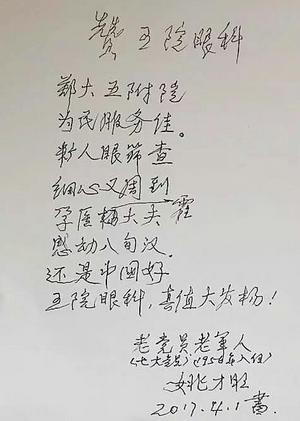 赞五院眼科
郑大五附院
为民服务佳。
对人眼筛查
细心又周到
孕医辅大夫霍
感动八旬汉。
还是中国好
五院眼科,真值大发扬!
老党员老军人
姚才旺
2017.4.1书